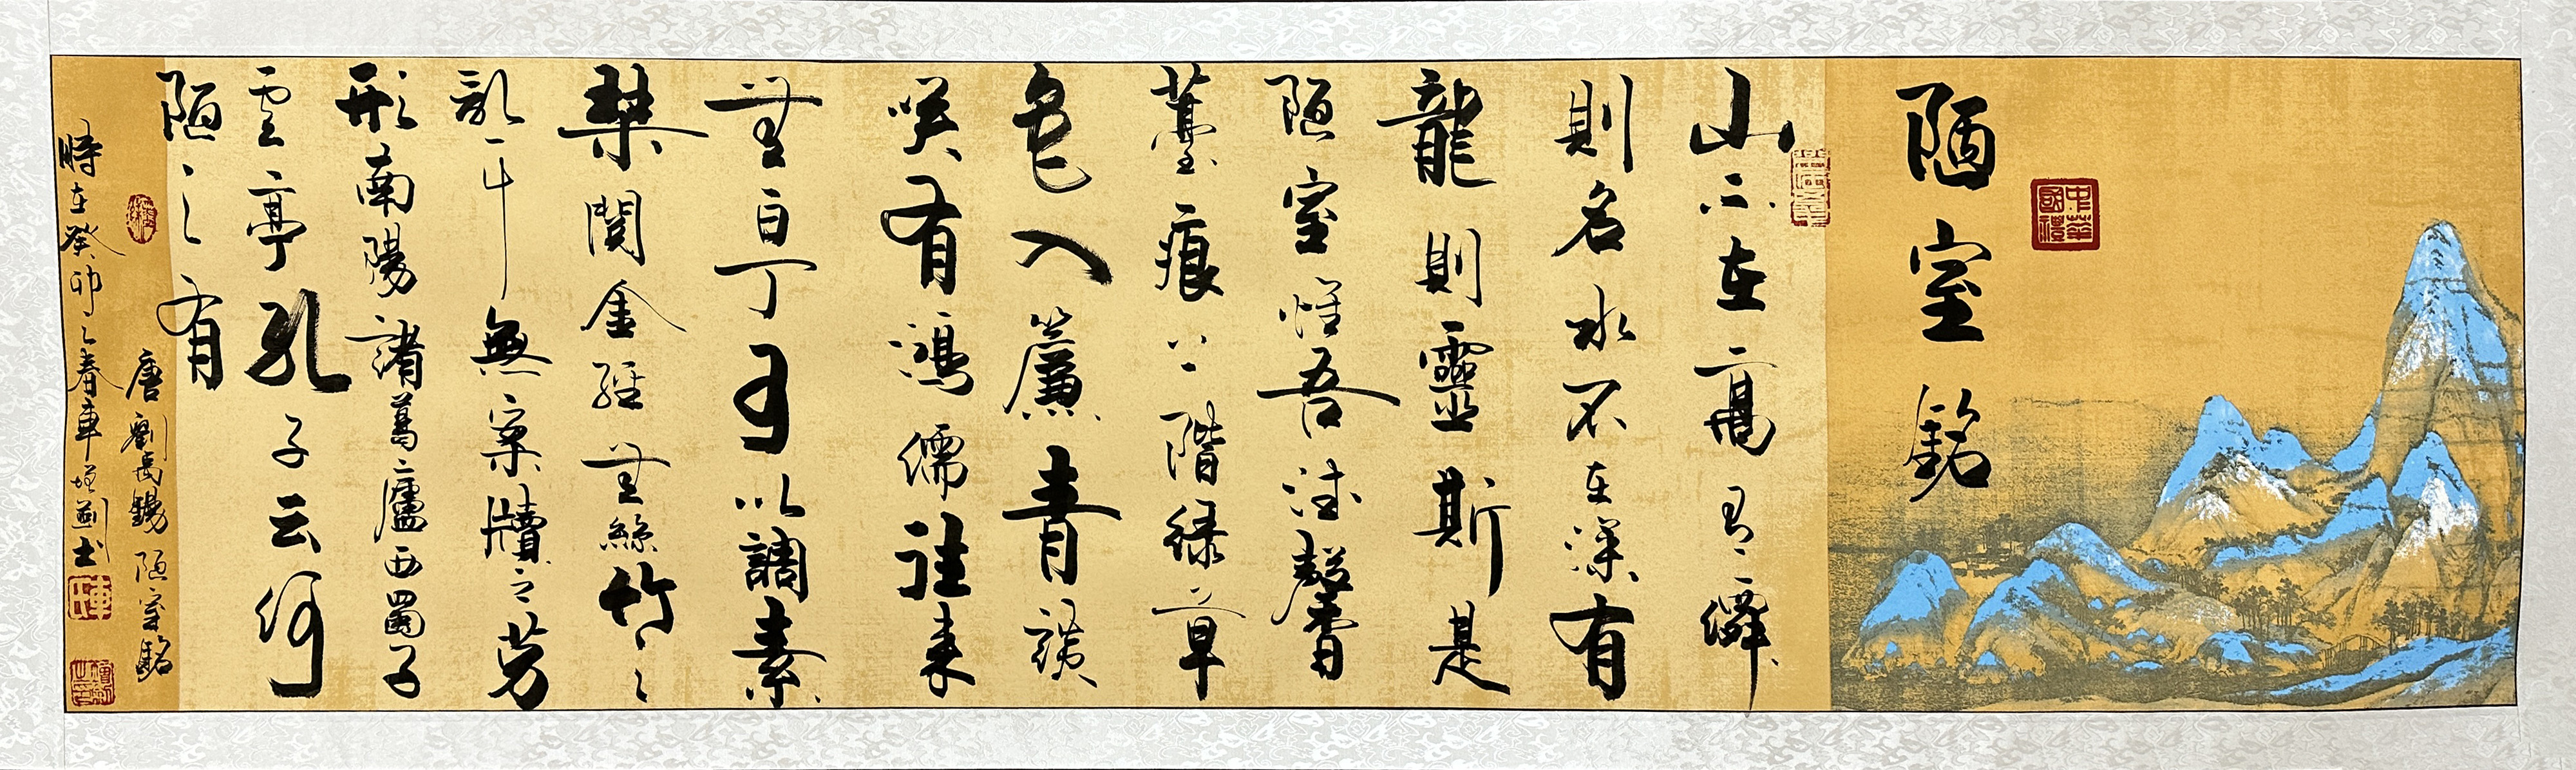 陋室銘
中華國禮
山不在高有僊
則名水不在深有
龍則靈斯是
陋室惟吾德馨
薹痕上階緑草
色入簾青談
咲有鴻儒往來
無白丁可以調素
琴閲金經無絲竹之
亂耳無案牘之勞
形南陽諸葛廬西蜀子
雲亭孔子云何
陋之有
唐劉禹錫陋室銘
時在癸卯之春車增劍书
車氏